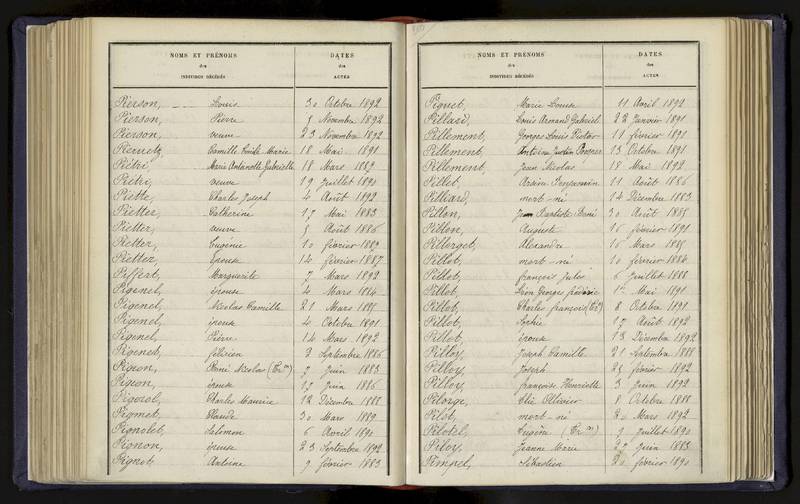 NOMS ET PRÉNOMS
des
INDIVIDUS DÉCÉDÉS
DATES
des
ACTES
Pierson, Louis 30 Octobre 1892
Pierson, Pierre 5 Novembre 1892
Pierson, veuve 23 Novembre 1892
Pierretz, Camille Emile Marie 18 Mai 1891
Piétri, Marie Antoinette Gabrielle 18 Mars 1889
Piétri, veuve 19 Juillet 1890
Piétte, Charles Joseph 4 Août 1892
Pietter, Catherine 17 Mai 1883
Pietter, veuve 5 Août 1886
Pietter, Eugénie 10 février 1889
Pietter, épouse 14 février 1887
Piffert, Marguerite 7 Mars 1892
Pigenel, épouse 4 Mars 1884
Pigenel, Nicolas Camille 21 Mars
Pigenel, épouse 4 Octobre 1891
Pigenel, Pierre 14 Mars 1892
Pigenet, félicien 2 Septembre 1886
Pigeon, René Nicolas 7 Juin 1883
Pigeon, épouse 17 Juin 1886
Pigerol, Charles Maurice 12 Décembre 1888
Pigmet, Claude 30 Mars 1889
Pignolet, Salomon 6 Avril 1890
Pignon, épouse 23 Septembre 1892
Pignot, Antoine 9 février 1883
NOMS ET PRÉNOMS
des
INDIVIDUS DÉCÉDÉS
DATES
des
ACTES
Piquet, Marie Louise 11 Avril 1892
Pillard, Louis Armand Gabriel 22 Janvier 1891
Pillement, Georges Louis 11 février 1891
Pillement, Antoine Justin Prosper 13 Octobre 1891
Pillement, Jean Nicolas 18 Mai 1892
Pillet, Arsène 11 Août 1886
Pilliard, mort-né 14 Décembre 1883
Pillon, Jean Baptiste René 30 Août 1885
Pillon, Auguste 16 février 1891
Pillerget, Alexandre 16 Mars 1885
Pillot, mort-né 10 février 1886
Pillot, françois Jules 6 Juillet 1888
Pillot, Léon Georges frédéric 1er Mai 1891
Pillot, Charles françois 8 Octobre 1891
Pillot, Sophie 17 Août 1892
Pillot, épouse 13 Décembre 1892
Pilloy, Joseph Camille 21 Septembre 1888
Pilloy, Joseph 25 février 1892
Pilloy, françoise Henriette 3 Juin 1892
Pilorge, Elie Ollivier 8 Octobre 1888
Pilot, mort-né 20 Mars 1892
Pilotel, Eugène 9 Juillet 1890
Piloy, Jeanne Marie 27 Juin 1883
Pimpel, Sébastien 20 février 1890